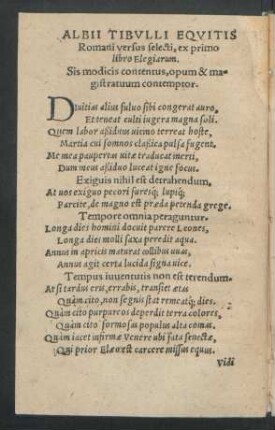 ALBII TIBVLLI EQVITIS
Romani versus selecti, ex primo
libro Elegiarum.
Sis modicis contentus, opum & ma-
gistratuum contemptor.
Diuitias alius fuluo sibi congerat auro,
Et teneat culti iugera magna soli.
Quem labor assiduus uicino terreat hoste,
Martia cui somnos classica pulsa fugent.
Me mea paupertas uitæ traducat inerti,
Dum meus assiduo luceat igne focus.
Exiguis nihil est detrahendum.
At uos exiguo pecori furesq;, lupiq;
Parcite, de magno est præda petenda grege.
Tempore omnia peraguntur.
Longa dies homini docuit parere Leones,
Longa dies molli saxa peredit aqua.
Annus in apricis maturat collibus uuas,
Annus agit certa lucida signa uice.
Tempus iuuentutis non est terendum.
At si tardus eris, errabis, transiet ætas
Quàm cito, non segnis stat remeatq; dies.
Quàm cito purpureos deperdit terra colores,
Quàm cito formosas populus alta comas.
Quàm iacet infirmæ Venere ubi fata senectæ,
Qui prior Elæo est carcere missus equus.
Vidi